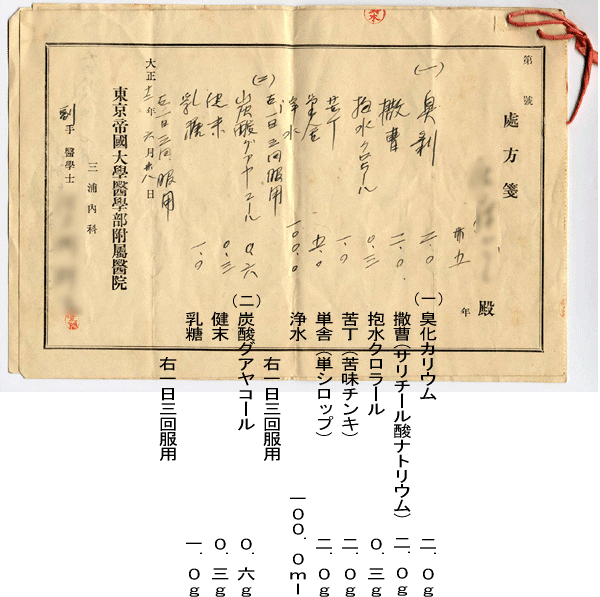 第 號
處方箋
殿
年
卅五
(一) 臭剥 二.〇
撒曹 二.〇
抱水クロラール 〇.三
苦丁 一.〇
単舎 五.〇
浄水 一〇〇.〇
右一日三回服用
(二) 炭酸グアヤコール 〇.六
健末 〇.三
乳糖 一.〇
右一日三回服用
大正十二年 六月 日
東京帝國大學醫學部附属醫院
三浦内科
副手 醫學士
(一)臭化カリウム 二.0g
撒曹(サリチール酸ナトリウム) 二.0g
抱水クロラール 0.三g
苦丁(苦味チンキ) 二.0g
単舎(単シロップ) 二.0g
浄水 一00.0ml
右一日三回服用
(二)炭酸グアヤコール 0.六g
健末 0.三g
乳糖 一.0g
右一日三回服用